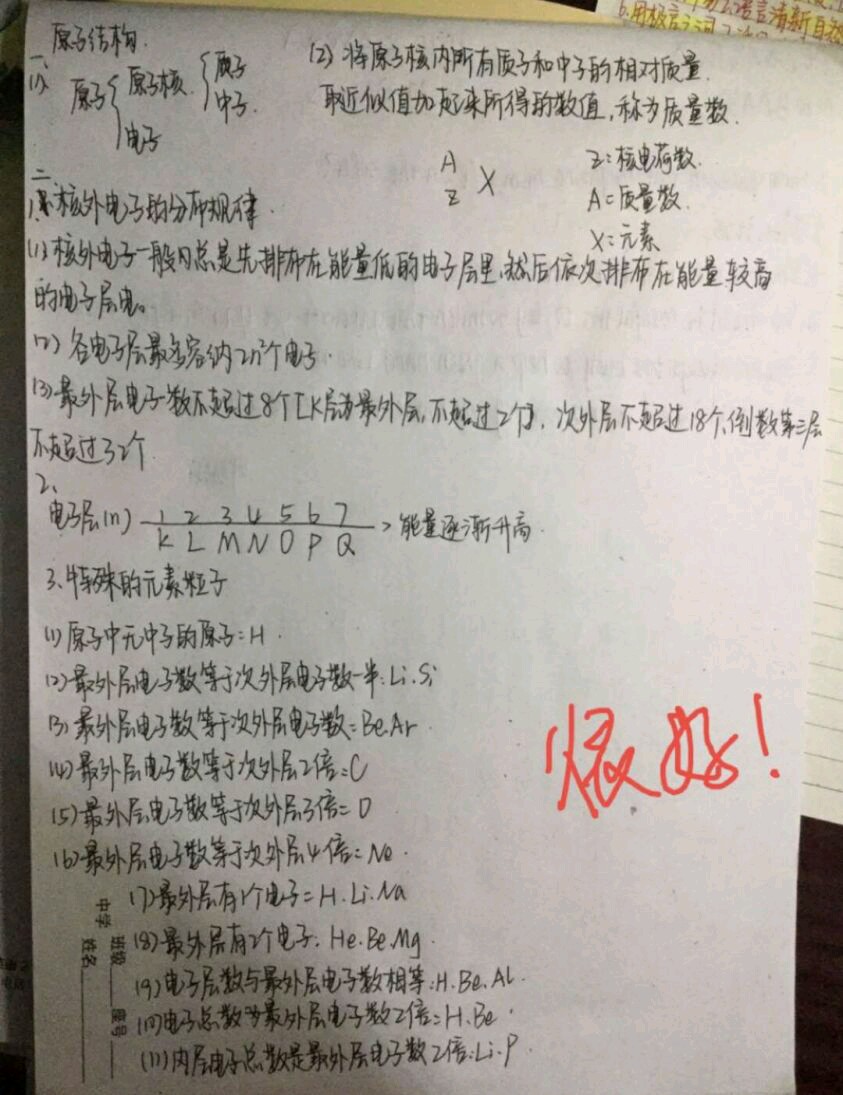 6.用极言之词
语言清新自然
原子结构
一、
(1)
原子{原子核{质子
中子
电子
(2) 将原子核内所有质子和中子的相对质量
取近似值加起来所得的数值,称为质量数.
A
Z X
Z:核电荷数.
A=质量数.
X:元素
二、
1.核外电子的分布规律.
(1)核外电子一般总是先排布在能量低的电子层里,然后依次排布在能量较高
的电子层电。
(2) 各电子层最多容纳2n²个电子.
(3)最外层电子数不超过8个[K层为最外层,不超过2个],次外层不超过18个,倒数第三层
不超过32个
2、
电子层(n) 1 2 3 4 5 6 7
K L M N O P Q > 能量逐渐升高.
3、特殊的元素粒子
(1)原子中无中子的原子=H.
(2)最外层电子数等于次外层电子数一半:Li.Si
(3)最外层电子数等于次外层电子数=Be.Ar.
(4)最外层电子数等于次外层2倍=C
(5)最外层电子数等于次外层3倍=O
(6)最外层电子数等于次外层4倍=Ne.
(7)最外层有1个电子=H.Li.Na
(8)最外层有2个电子:He.Be.Mg.
(9)电子层数与最外层电子数相等:H.Be.Al.
(10)电子总数为最外层电子数2倍=H.Be.
(11)内层电子总数是最外层电子数2倍:Li.P
很好!
中学 班级 座号
姓名